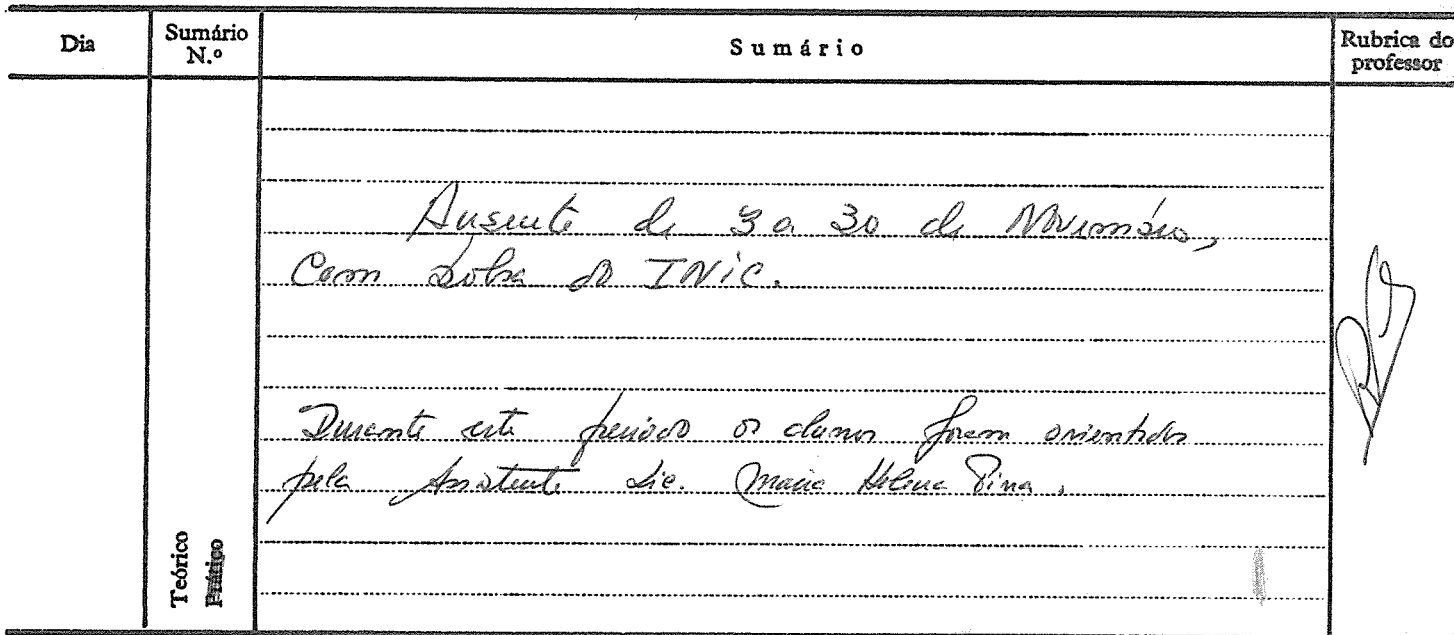 Dia
Sumário N.º
Sumário
Rubrica do professor
Ausente de 3 a 30 de Novembro,
Com bolsa do INIC.
Durante este período os alunos foram orientados
pela Assistente Lic. Maria Helena Pina.
Teórico
Prático